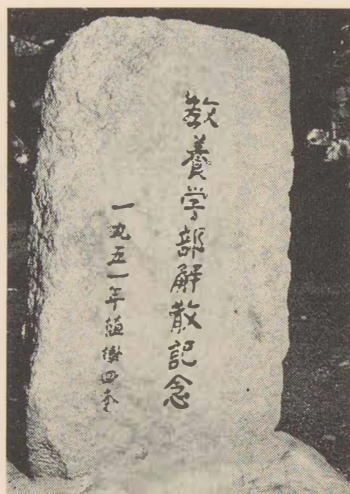 教養学部解散記念
一九五一年植樹四本